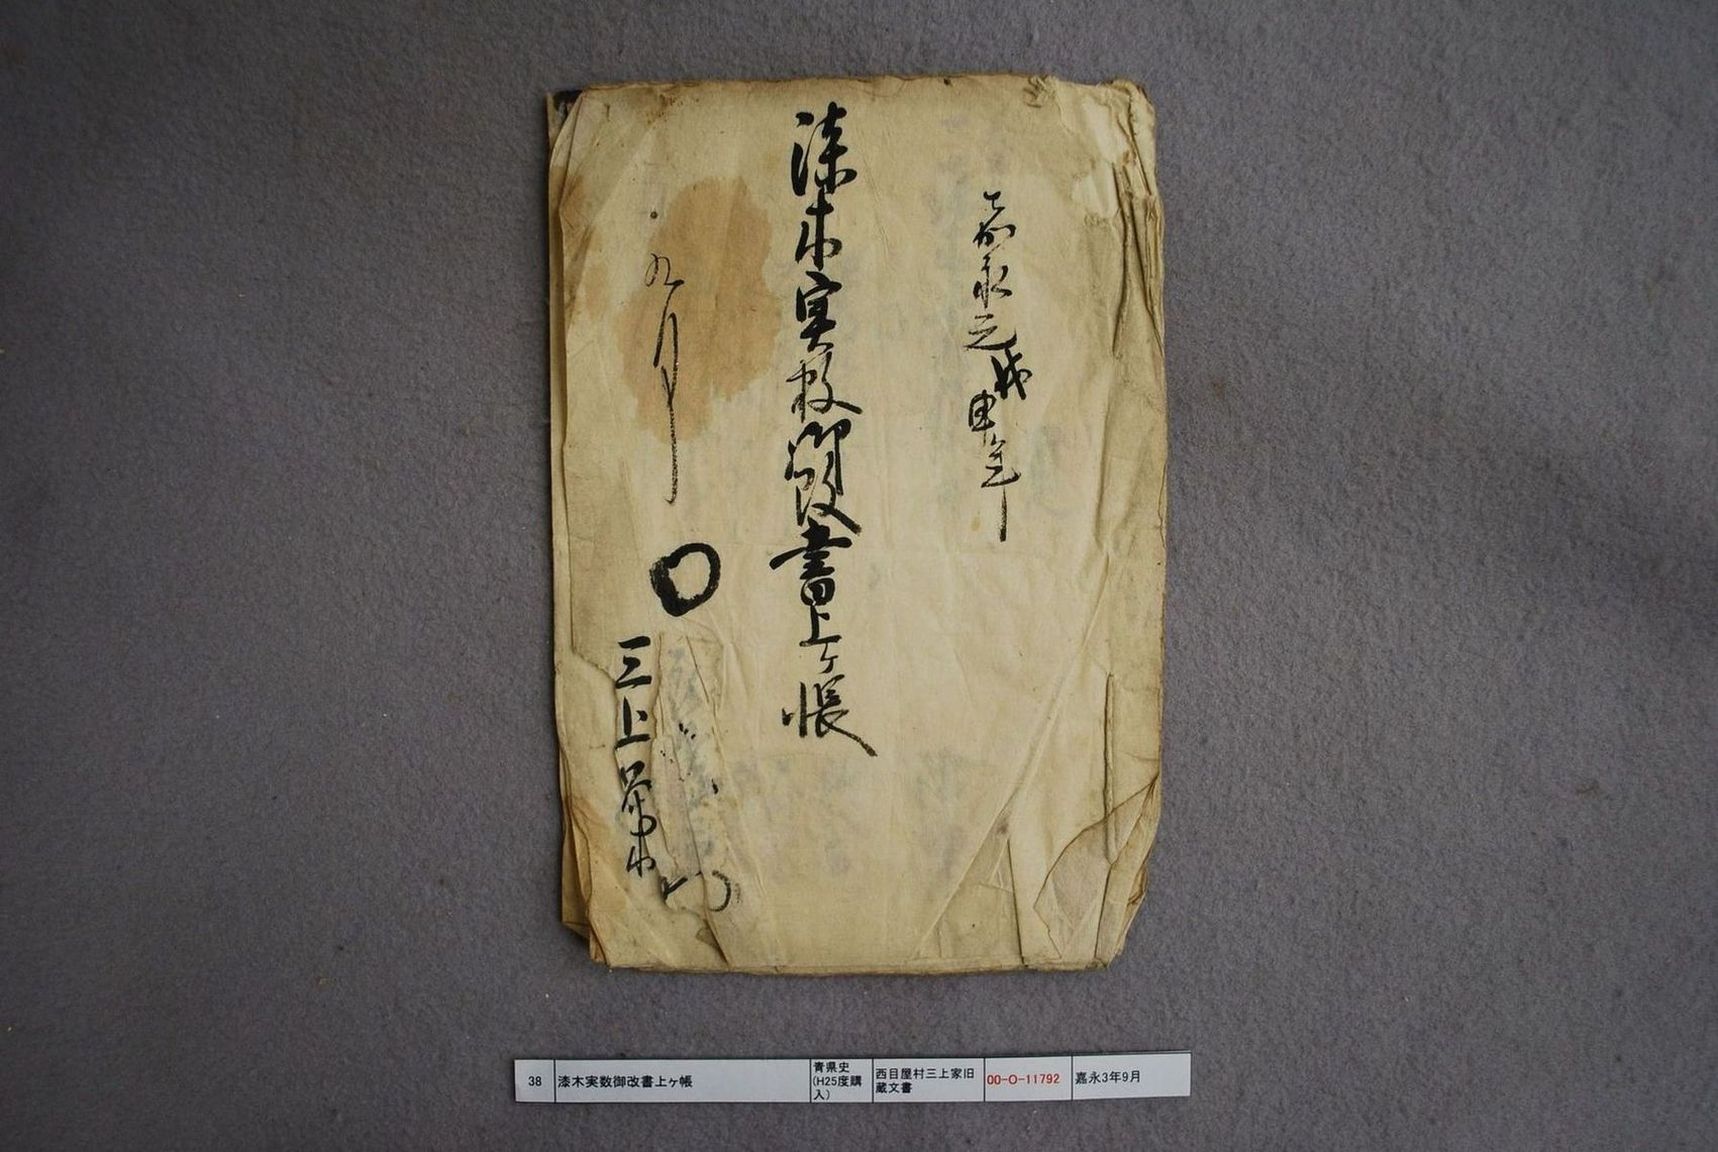 嘉永元戊申年
漆木実数御改書上ヶ帳
九月
三上
38
漆木実数御改書上ヶ帳
青県史
(H25度購
入)
西目屋村三上家旧
蔵文書
00-O-11792
嘉永3年9月